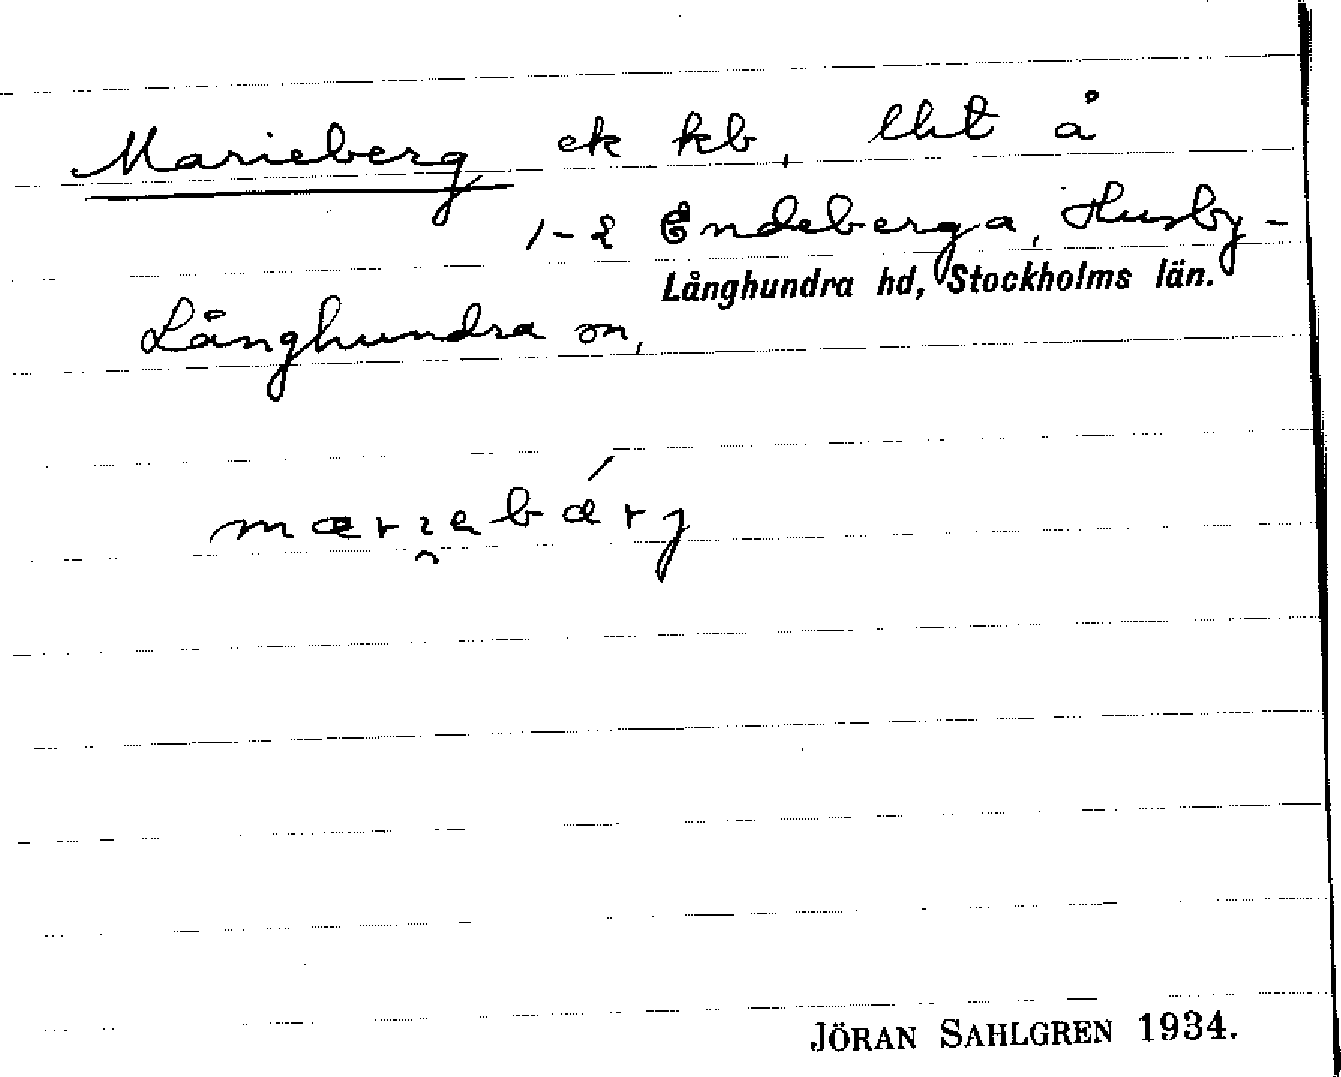 Marieberg ek kb, lht å
1-2 Endeberga, Husby-
Långhundra hd, Stockholms län.
Långhundra sn,
mærɪ̯abǽrj
JÖRAN SAHLGREN 1934.